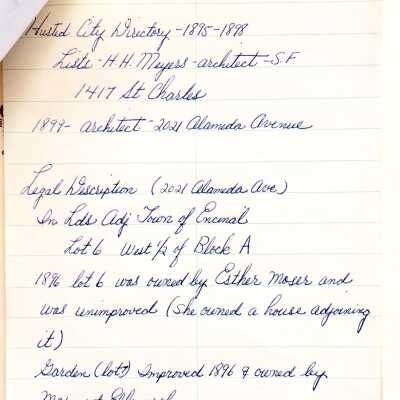 Husted City Directory - 1895-1898
Lists - H.H. Meyers - architect - S.F.
1417 St Charles
1899 - architect - 2021 Alameda Avenue
Legal Description (2021 Alameda Ave)
In Lds Adj Town of Encinal
Lot 6 West 1/2 of Block A
1896 lot 6 was owned by Esther Moser and
was unimproved (she owned a house adjoining
it)
Garden (lot) Improved 1896 & owned by